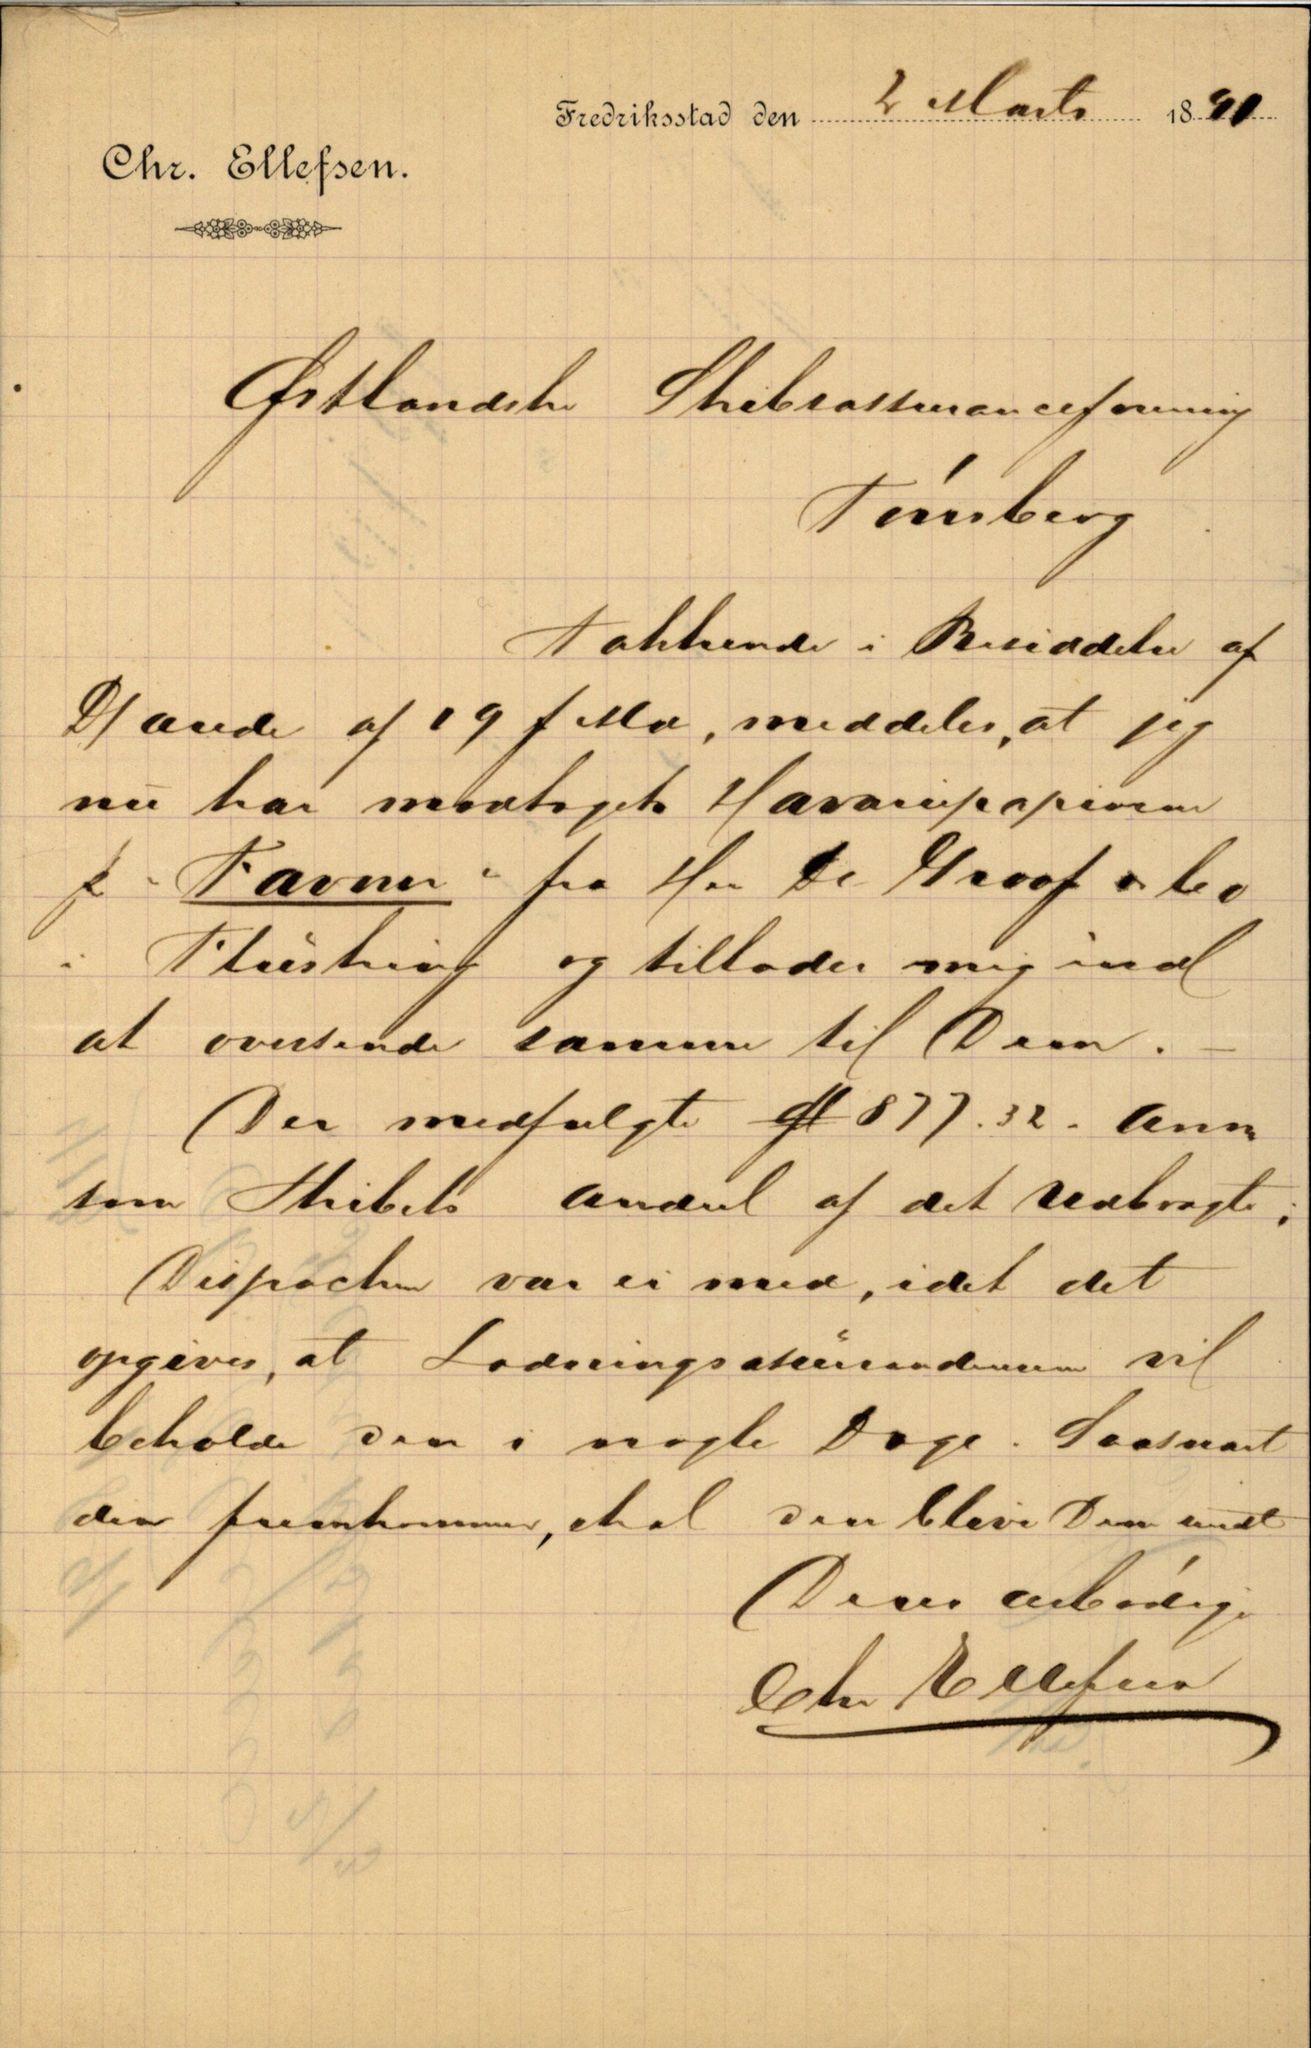 Fredriksstad den 2 Marts 1891
Chr. Ellefsen.
Østlandske Skibsassuranceforening
Tönsberg
Takkende i Besiddelse af
D/ ærede af 19 f Md, meddeles, at jeg
nu har modtaget Havaripapirerne
p "Favner" fra Hrr De Groof & Co
i Flüshing og tillader mig ind
at oversende samme til Dem. —
Der medfulgte fl 877.32.
som Skibets Andeel af det Udbragte;
Dispachen var ei med, idet det
opgives, at Ladningsassürandeurerne vil
beholde den i nogle Dage. Saasnart
den fremkommer, skal den blive Dem sendt
Deres ærbödige
Chr Ellefsen